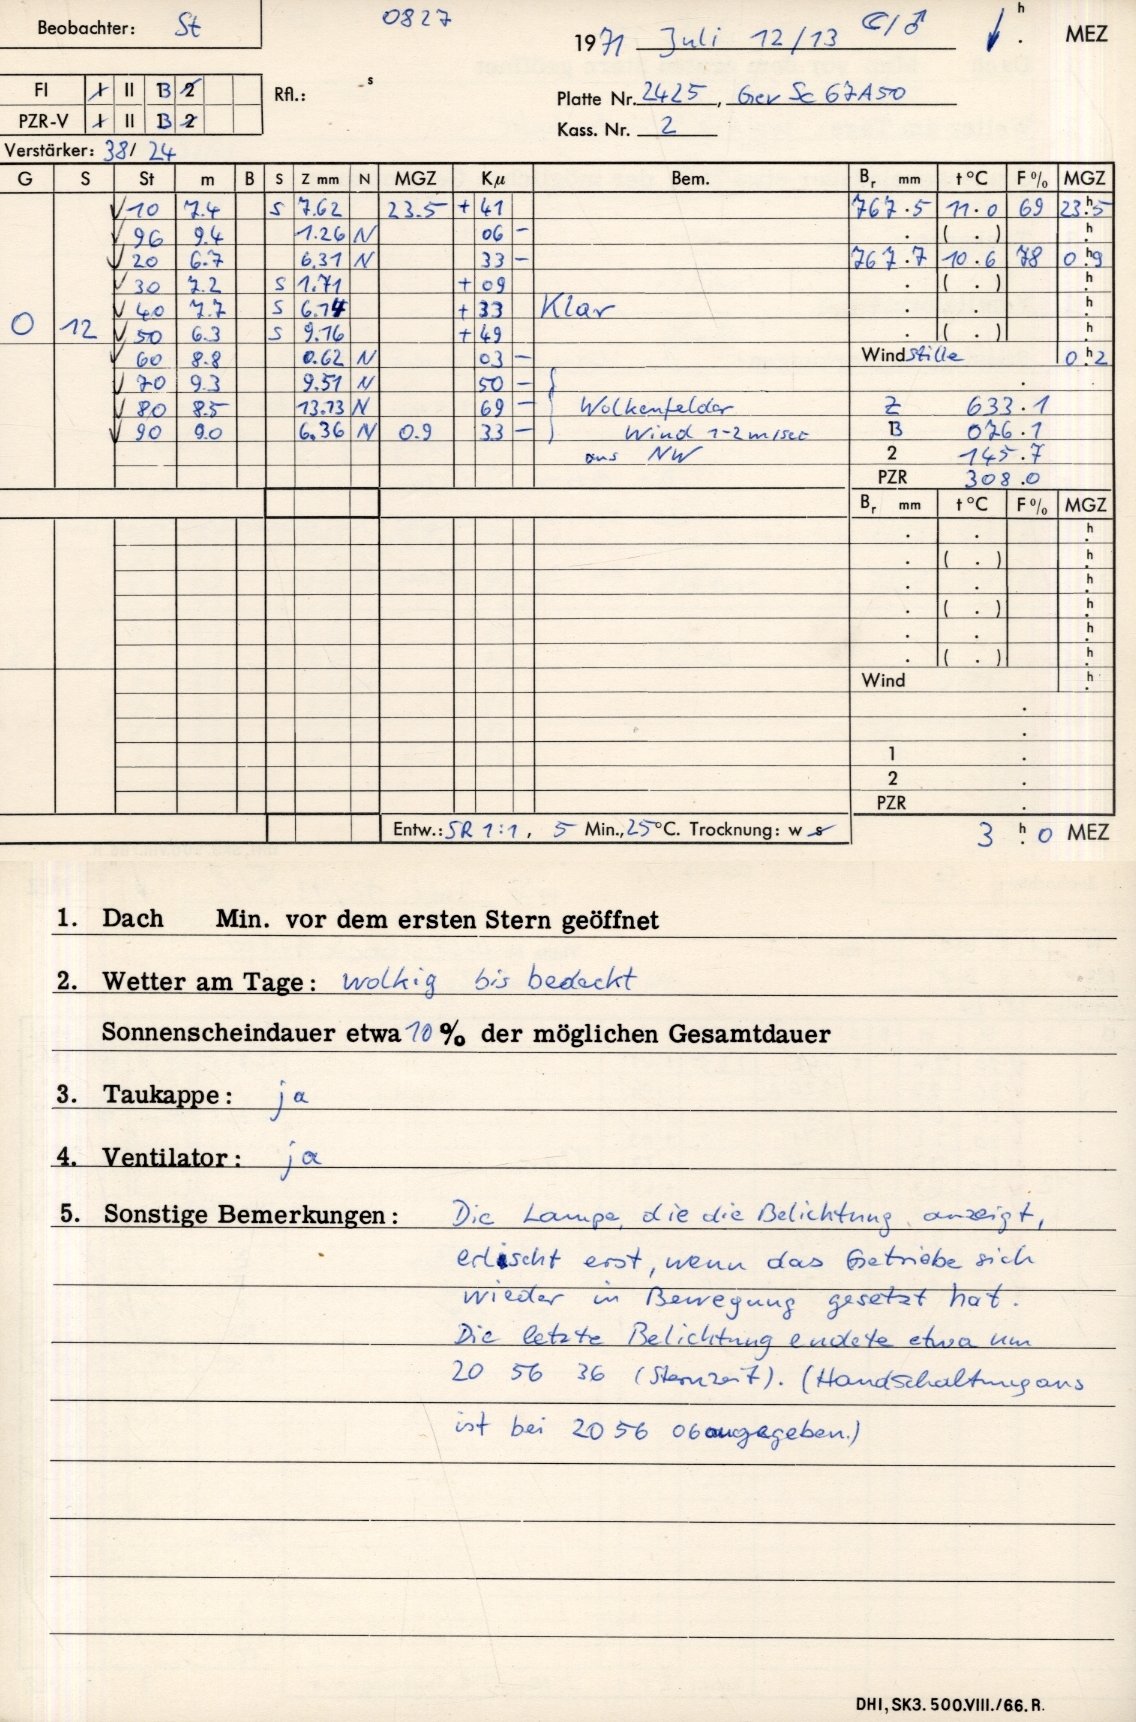 Beobachter: St
0827
1971 Juli 12/13 ☾/♂ h . MEZ
FI I II B 2
Rfl.: - s
Platte Nr. 2425, Gev Sc 67A50
PZR-V I II B 2
Kass. Nr. 2
Verstärker: 38/24
G S St m B S Z mm N MGZ Kμ Bem. Br mm t °C F % MGZ
√ 10 7.4 S 7.62 23.5 + 41 767.5 11.0 69 23h.5
√ 96 9.4 1.26 N 06 - . ( . ) h.
√ 20 6.7 6.31 N 33 - 767.7 10.6 78 0h.9
√ 30 7.2 S 1.71 + 09 . ( . ) h.
√ 40 7.7 S 6.14 + 33 Klar . . h.
0 12 √ 50 6.3 S 9.16 + 49 . ( . ) h.
√ 60 8.8 0.62 N 03 - Wind stille 0h.2
√ 70 9.3 9.51 N 50 - .
√ 80 8.5 13.13 N 69 - Wolkenfelder Z 633.1
√ 90 9.0 6.36 N 0.9 33 - Wind 1-2 m/sec B 076.1
aus NW 2 145.7
PZR 308.0
Br mm t °C F % MGZ
. . h.
. ( . ) h.
. . h.
. ( . ) h.
. . h.
. ( . ) h.
Wind h.
.
.
1 .
2 .
PZR .
Entw.: SR 1:1, 5 Min., 25°C. Trocknung: w s
3 h. 0 MEZ
1. Dach Min. vor dem ersten Stern geöffnet
2. Wetter am Tage: wolkig bis bedeckt
Sonnenscheindauer etwa 10 % der möglichen Gesamtdauer
3. Taukappe: ja
4. Ventilator: ja
5. Sonstige Bemerkungen: Die Lampe, die die Belichtung anzeigt,
erlischt erst, wenn das Getriebe sich
wieder in Bewegung gesetzt hat.
Die letzte Belichtung endete etwa um
20 56 36 (Sternzeit). (Handschaltung aus
ist bei 20 56 06 angegeben.)
DHI, SK3. 500.VIII./66. R.